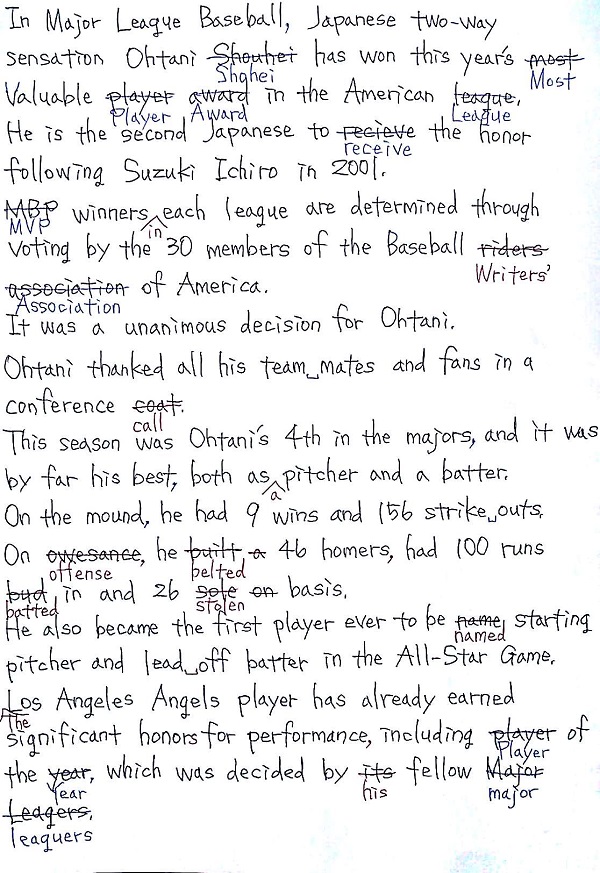 In Major League Baseball, Japanese two-way
sensation Ohtani Shouhei has won this year's most
Shohei
Most
Valuable player award in the American league.
Player Award
League
He is the second Japanese to recieve the honor
receive
following Suzuki Ichiro in 2001.
MBP winners each league are determined through
MVP
in
voting by the 30 members of the Baseball riders
Writers'
association of America.
Association
It was a unanimous decision for Ohtani.
Ohtani thanked all his team mates and fans in a
conference coat.
call
This season was Ohtani's 4th in the majors, and it was
by far his best, both as pitcher and a batter.
a
On the mound, he had 9 wins and 156 strike outs.
On owesance, he built a 46 homers, had 100 runs
offense
belted
bud in and 26 sole on basis.
batted
stolen
He also became the first player ever to be name starting
named
pitcher and lead off batter in the All-Star Game.
Los Angeles Angels player has already earned
The
significant honors for performance, including player of
Player
the year, which was decided by its fellow Major
Year
his
major
Leagers.
leaguers